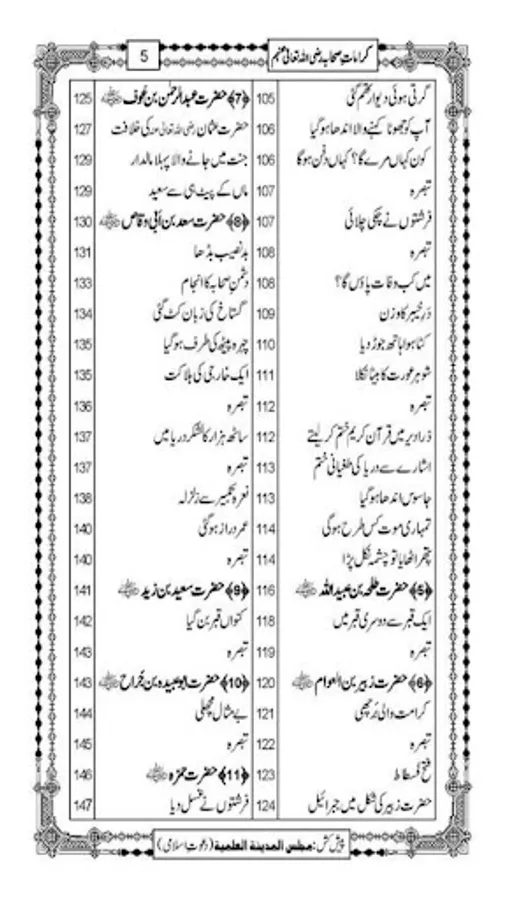 کراماتِ صحابہ رضی اللہ تعالیٰ عنہم
5
گرتی ہوئی دیوار تھم گئی 105
آپ کو جھوٹا کہنے والا اندھا ہوگیا 106
کون کہاں مرے گا؟ کہاں دفن ہوگا 106
تبصرہ 107
فرشتوں نے چکی چلائی 107
تبصرہ 108
میں کب وفات پاؤں گا؟ 108
درِ خیبر کا وزن 109
کٹا ہوا ہاتھ جوڑ دیا 110
شوہر عورت کا بیٹا نکلا 111
تبصرہ 112
ذرا دیر میں قرآن کریم ختم کرلیتے 112
اشارے سے دریا کی طغیانی ختم 113
جاسوس اندھا ہوگیا 113
تمہاری موت کس طرح ہوگی 114
پتھر اٹھایا تو چشمہ نکل پڑا 114
﴿5﴾ حضرت طلحہ بن عبید اللہ 116
ایک قبر سے دوسری قبر میں 118
تبصرہ 119
﴿6﴾ حضرت زبیر بن العوام 120
کرامت والی برچھی 121
تبصرہ 122
فتح فسطاط 123
حضرت زبیر کی شکل میں جبرائیل 124
﴿7﴾ حضرت عبدالرحمٰن بن عوف 125
حضرت عثمان رضی اللہ تعالیٰ عنہ کی خلافت 127
جنت میں جانے والا پہلا مالدار 129
ماں کے پیٹ ہی سے سعید 129
﴿8﴾ حضرت سعد بن ابی وقاص 130
بدنصیب بڈھا 131
دشمنِ صحابہ کا انجام 133
گستاخ کی زبان کٹ گئی 134
چہرہ پیٹھ کی طرف ہوگیا 135
ایک خارجی کی ہلاکت 135
تبصرہ 136
ساٹھ ہزار کا لشکر دریا میں 137
تبصرہ 137
نعرہ تکبیر سے زلزلہ 138
عمر دراز ہوگئی 140
تبصرہ 140
﴿9﴾ حضرت سعید بن زید 141
کنواں قبر بن گیا 142
تبصرہ 143
﴿10﴾ حضرت ابوعبیدہ بن جراح 143
بے مثال مچھلی 144
تبصرہ 145
﴿11﴾ حضرت حمزہ 146
فرشتوں نے غسل دیا 147
پیش کش: مجلس المدینۃ العلمیۃ (دعوتِ اسلامی)